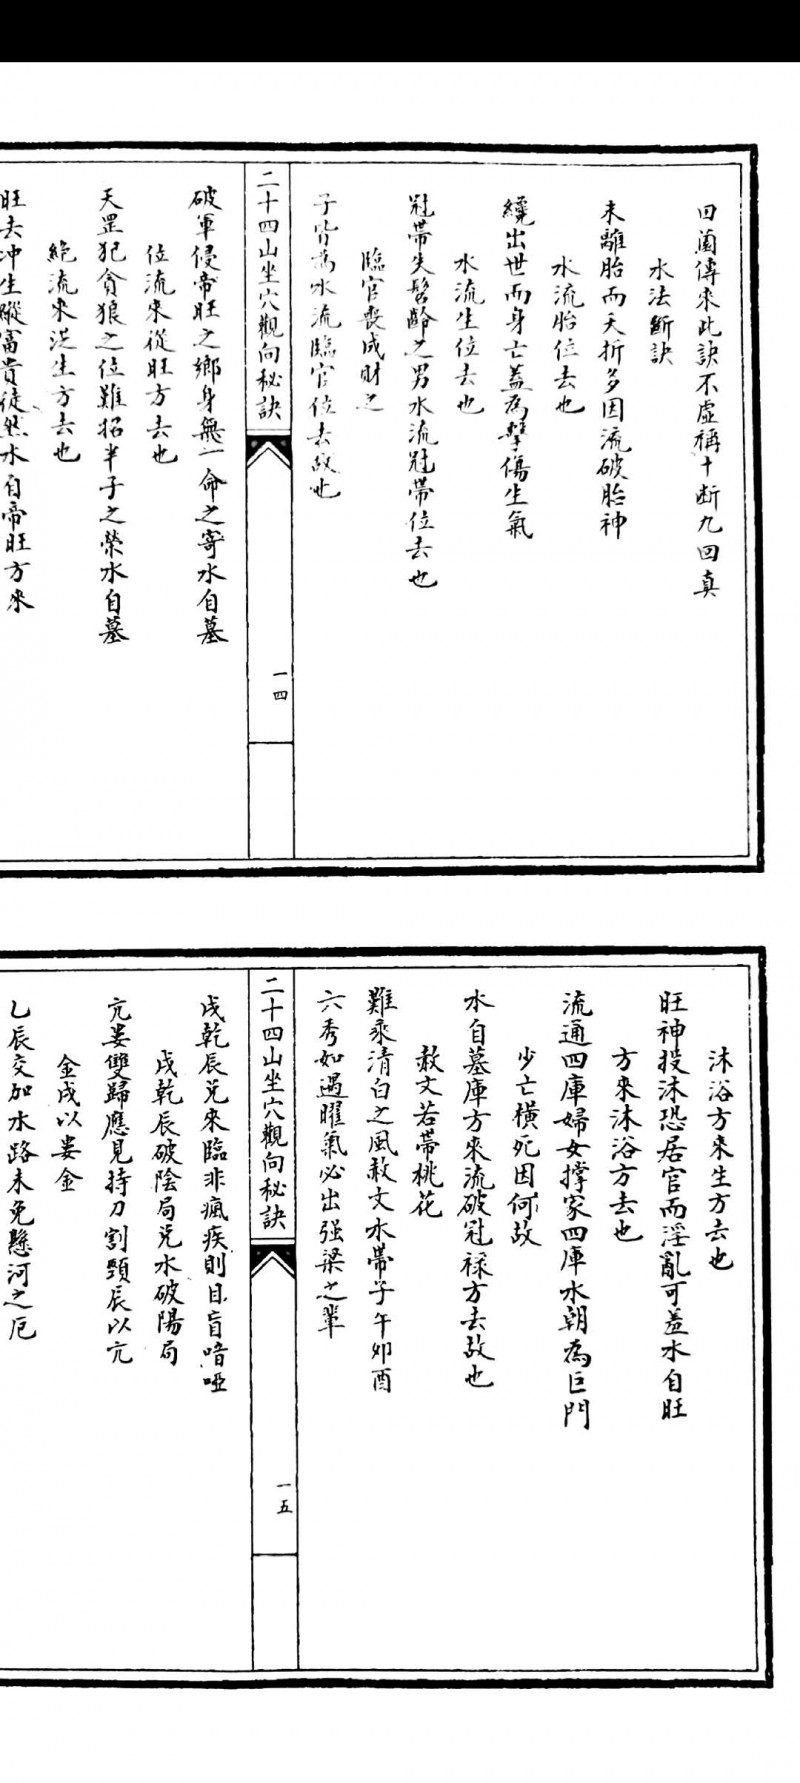 田蘭傳來此訣不虛稱十断九回真
水法斷訣
未離胎而夭折多因流破胎神
水流胎位去也
纔出世而身亡蓋為擊傷生氣
水流生位去也
冠帶失髫齡之男水流冠帶位去也
臨官喪成財之
子皆為水流臨官位去故也
二十四山坐穴觀向秘訣
一四
破軍侵帝旺之鄉身無一命之寄水自墓
位流來從旺方去也
天罡犯貪狼之位難招半子之榮水自墓
絕流來从生方去也
旺去冲生縱富貴徒然水自帝旺方來
沐浴方來生方去也
旺神投沐恐居官而淫亂可羞水自旺
方來沐浴方去也
流通四庫婦女撑家四庫水朝為巨門
少亡橫死因何故
水自墓庫方來流破冠祿方去故也
赦文若帶桃花
難乘清白之風赦文水帶子午卯酉
六秀如過曜氣必出强梁之輩
二十四山坐穴觀向秘訣
一五
戌乾辰兌來臨非瘋疾則目盲喑啞
戌乾辰破陰局兌水破陽局
亢婁雙歸應見持刀割頸辰以亢
金戌以婁金
乙辰交加水路未免懸河之厄